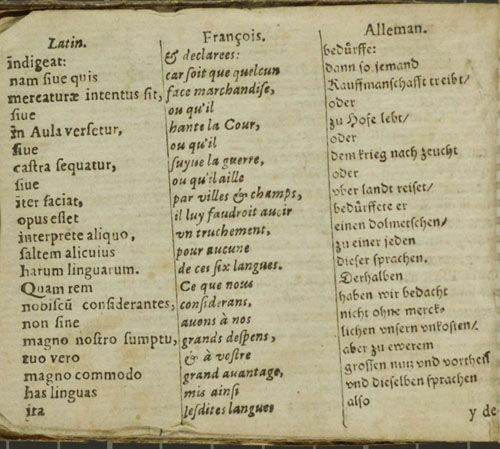 Latin.
indigeat:
nam ſiue quis
mercaturæ intentus ſit,
ſiue
in Aula verſetur,
ſiue
caſtra ſequatur,
ſiue
iter faciat,
opus eſſet
interprete aliquo,
ſaltem alicuius
harum linguarum.
Quam rem
nobiſcũ conſiderantes,
non ſine
magno noſtro ſumptu,
tuo vero
magno commodo
has linguas
ita
François.
& declarees:
car ſoit que quelcun
face marchandiſe,
ou qu'il
hante la Cour,
ou qu'il
ſuyue la guerre,
ou qu'il aille
par villes & champs,
il luy faudroit auoir
vn truchement,
pour aucune
de ces ſix langues.
Ce que nous
conſiderans,
auons à nos
grands deſpens,
& à veſtre
grand auantage,
mis ainſi
leſdites langues
Alleman.
bedůrffe:
dann ſo jemand
Kauffmanſchafft treibt/
oder
zu Hofe lebt/
oder
dem krieg nach zeucht
oder
vber landt reiſet/
bedůrffete er
einen dolmetſchen/
zu einer jeden
dieſer ſprachen.
Derhalben
haben wir bedacht
nicht ohne merck⸗
lichen vnſern vnkoſten/
aber zu ewerem
groſſen nun vnd vortheil
vnd dieſelben ſprachen
alſo
y de